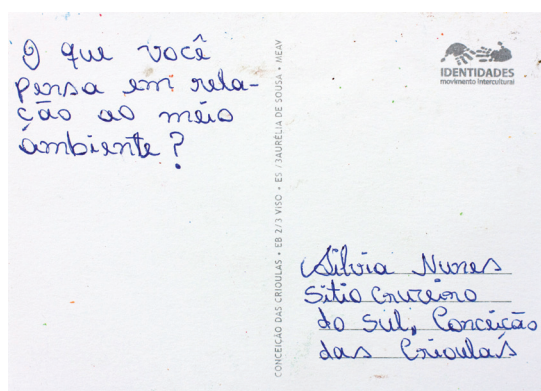 O que você
pensa em rela-
ção ao meio
ambiente?
CONCEIÇÃO DAS CRIOULAS • EB 2/3 VISO • ES • 3AURÉLIA DE SOUSA • MEAV
IDENTIDADES
movimento intercultural
Silvia Nunes
Sitio Cruzeiro
do Sul, Conceição
das Crioulas